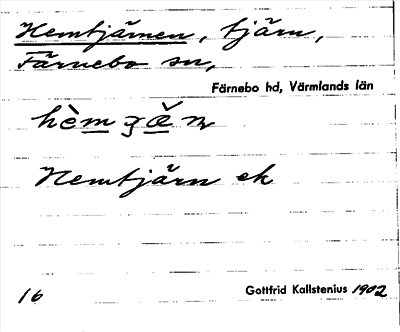 Hemtjärnen, tjärn,
Färnebo sn,
Färnebo hd, Värmlands län
Hemtjärn ek
16 Gottfrid Kallstenius 1902